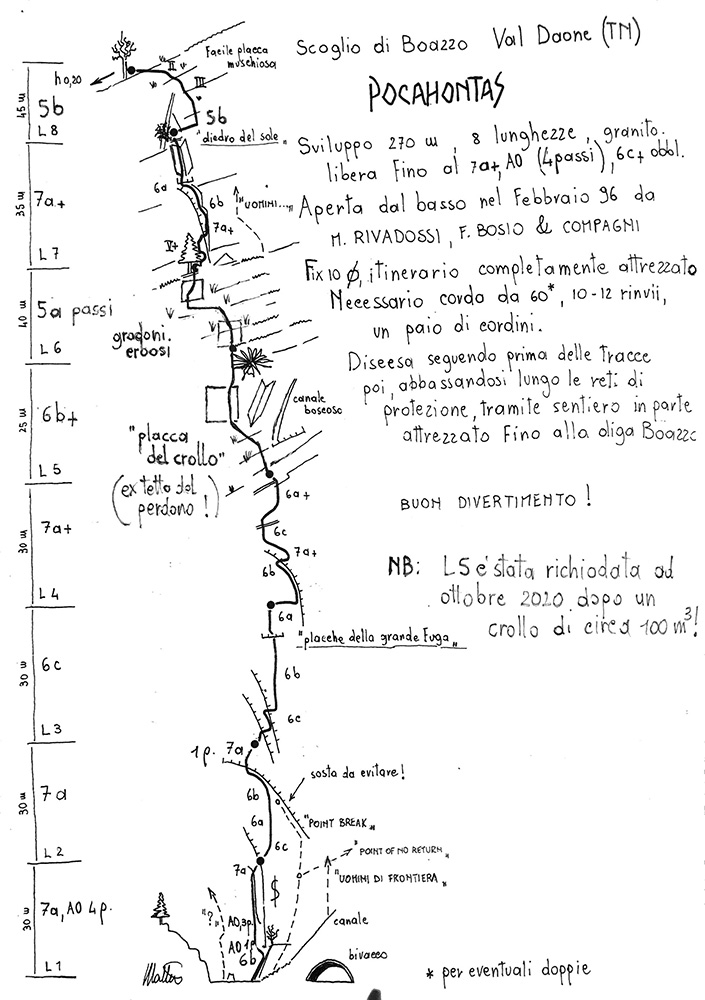 Scoglio di Boazzo Val Daone (TN)
POCAHONTAS
Sviluppo 270 m, 8 lunghezze, granito.
libera fino al 7a+, A0 (4 passi), 6c+ obbl.
Aperta dal basso nel Febbraio 96 da
M. RIVADOSSI, F. BOSIO & COMPAGNI
Fix 10 Ø, itinerario completamente attrezzato
Necessario corda da 60*, 10-12 rinvii,
un paio di cordini.
Discesa seguendo prima delle tracce
poi, abbassandosi lungo le reti di
protezione, tramite sentiero in parte
attrezzato fino alla diga Boazzo
BUON DIVERTIMENTO!
NB: L5 e' stata richiodata ad
ottobre 2020 dopo un
crollo di circa 100 m³!
Facile placca
muschiosa
h 0,20
II
III
45 m
5b
L8
5b
"diedro del sole"
35 m
7a+
L7
6a
6b
7a+
"UOMINI..."
V+
40 m
5a passi
L6
gradoni
erbosi
25 m
6b+
L5
canale
boscoso
"placca
del crollo"
(ex tetto del
perdono!)
6a+
30 m
7a+
L4
6c
7a+
6b
6a
"placche della grande fuga"
30 m
6c
L3
6b
6c
1 p.
7a
30 m
7a
L2
sosta da evitare!
6b
6a
"POINT BREAK"
6c
"POINT OF NO RETURN"
7a
"UOMINI DI FRONTIERA"
30 m
7a, A0 4 p.
L1
$
"?"
A0, 3 p.
A0 1 p.
6b
canale
bivacco
Matteo
* per eventuali doppie